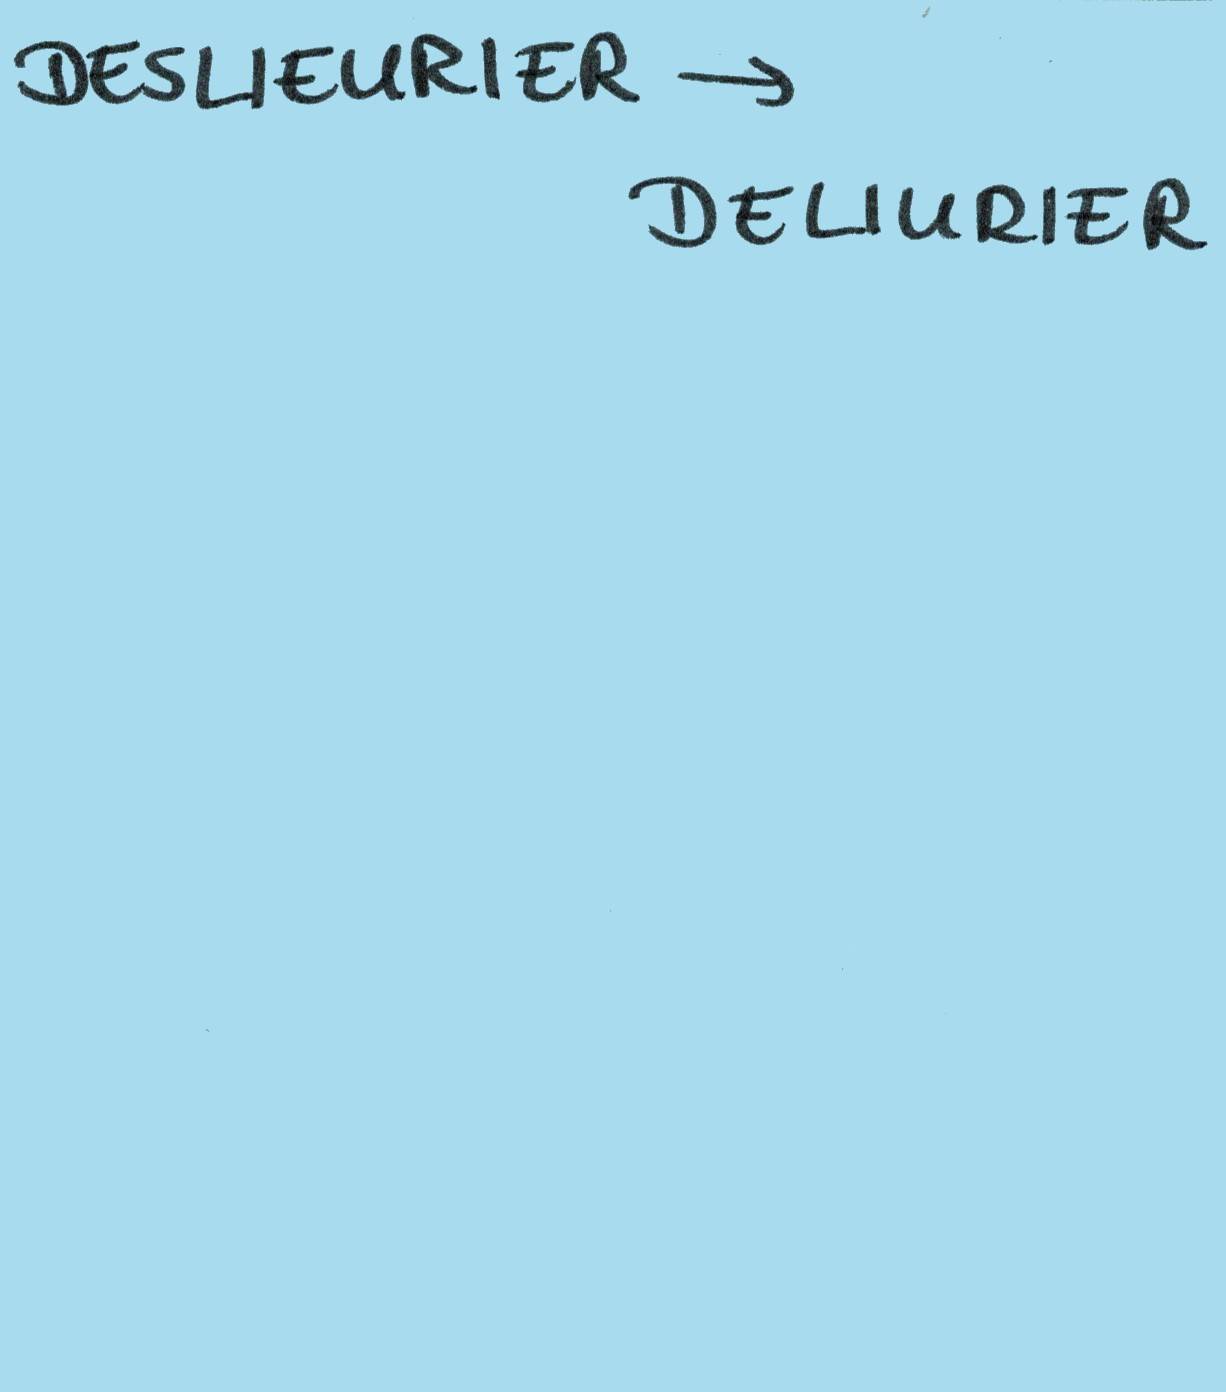 DESLIEURIER →
DELIURIER